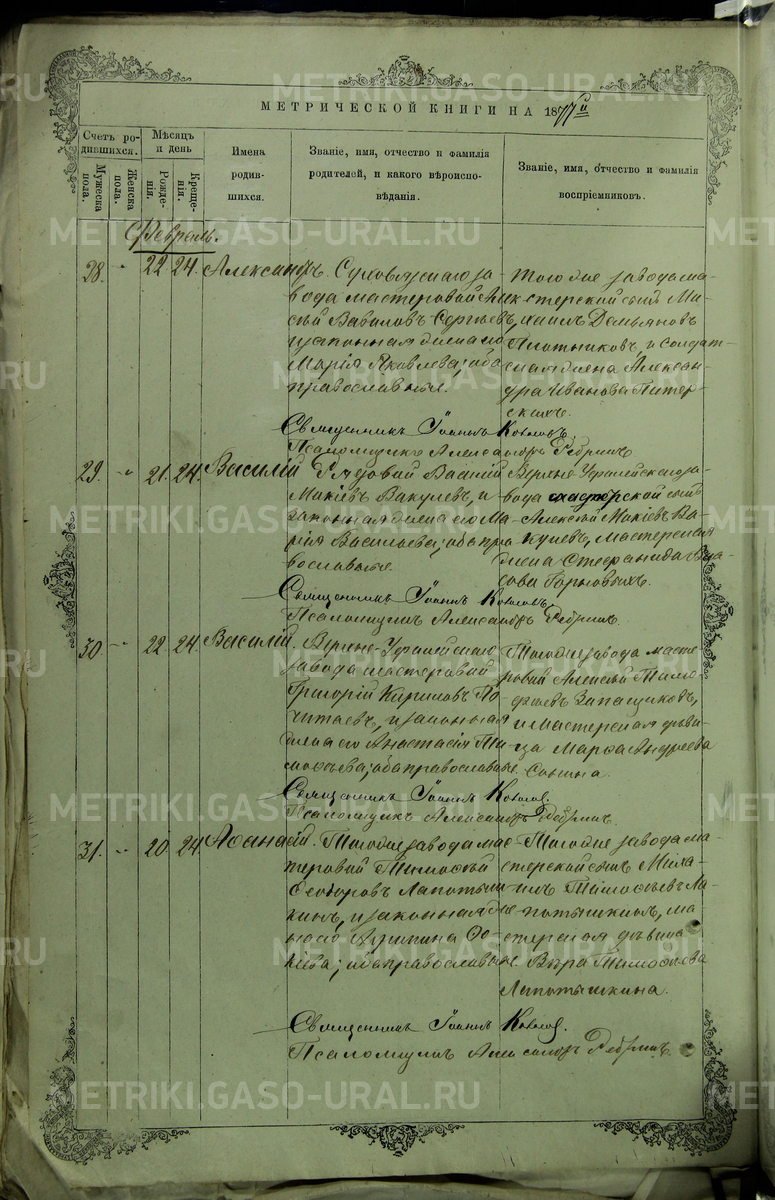 МЕТРИЧЕСКОЙ КНИГИ НА 1877й
Счетъ родившихся.
Мужеска пола.
Женска пола.
Мѣсяцъ и день
Рожденія.
Крещенія.
Имена родившихся.
Званіе, имя, отчество и фамилія родителей, и какого вѣроисповѣданія.
Званіе, имя, отчество и фамилія воспріемниковъ.
Февраль.
28. 22. 24. Александръ.
завода мастеровой
Вавиловъ Сергѣевъ,
и законная жена его
Марія Яковлева; оба
православные.
Тогоже завода ма-
стерской сынъ Ми-
хаилъ Демьяновъ
Плотниковъ, и солдат-
ская жена Алексан-
дра Иванова Питер-
скихъ.
Священникъ Іоаннъ
Псаломщикъ Александръ Ребринъ
29. 21. 24. Василій
Рядовой Василій
Вакулевъ, и
законная жена его Ма-
рія Васильева; оба пра-
вославные.
Верхне-Уфалейскаго за-
вода мастерской сынъ
Алексѣй
мастерская
жена Стефанида
Священникъ Іоаннъ
Псаломщикъ Александръ Ребринъ
30. 22. 24. Василій.
Верхне-Уфалейскаго
завода мастеровой
Григорій Кириловъ По-
читаевъ, и законная
жена его Анастасія Ти-
моѳѣева; оба православные.
Тогоже завода масте-
ровой Алексѣй Тимо-
ѳѣевъ Запащиковъ,
и мастерская дѣви-
ца Марѳа Андреева
Сонина.
Священникъ Іоаннъ
Псаломщикъ Александръ Ребринъ
31. 20. 24 Аѳанасій.
Тогоже завода мас-
теровой Тимоѳѣй
Ѳеодоровъ Лапотыш-
кинъ, и законная же-
на его
оба православные.
Тогоже завода ма-
стерской сынъ Миха-
илъ Тимоѳѣевъ Ла-
потышкинъ, ма-
стерская дѣвица
Вѣра Тимоѳѣева
Лапотышкина.
Священникъ Іоаннъ
Псаломщикъ Александръ Ребринъ
METRIKI.GASO-URAL.RU